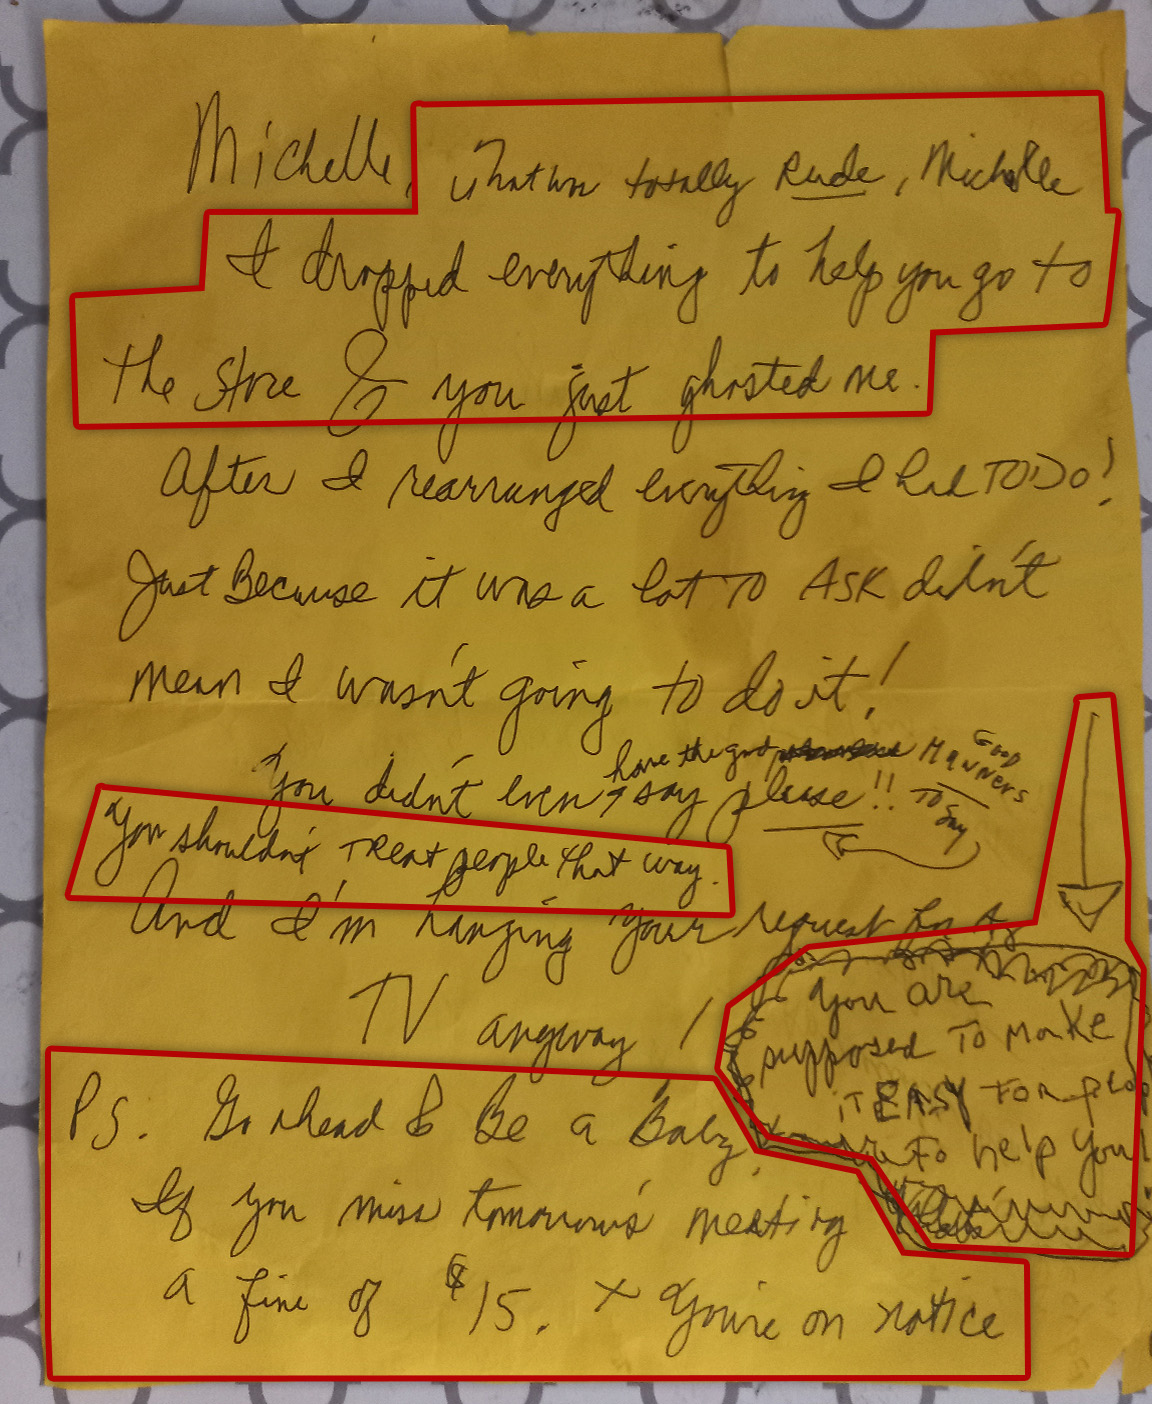 Michelle, That was totally Rude, Michelle
I dropped everything to help you go to
the store & you just ghosted me.
After I rearranged everything I had TO DO!
Just Because it was a lot TO ASK didn't
mean I wasn't going to do it!
have the good GOOD MANNERS
You didn't even say please!! TO Say
You shouldn't TReat people that way.
And I'm hanging your request for
TV anyway!
You are
supposed TO MaKe
iT EASY FOR
To help You!
PS. Go ahead & Be a Baby.
If you miss tomorrow's meeting
a fine of $15. + You're on notice